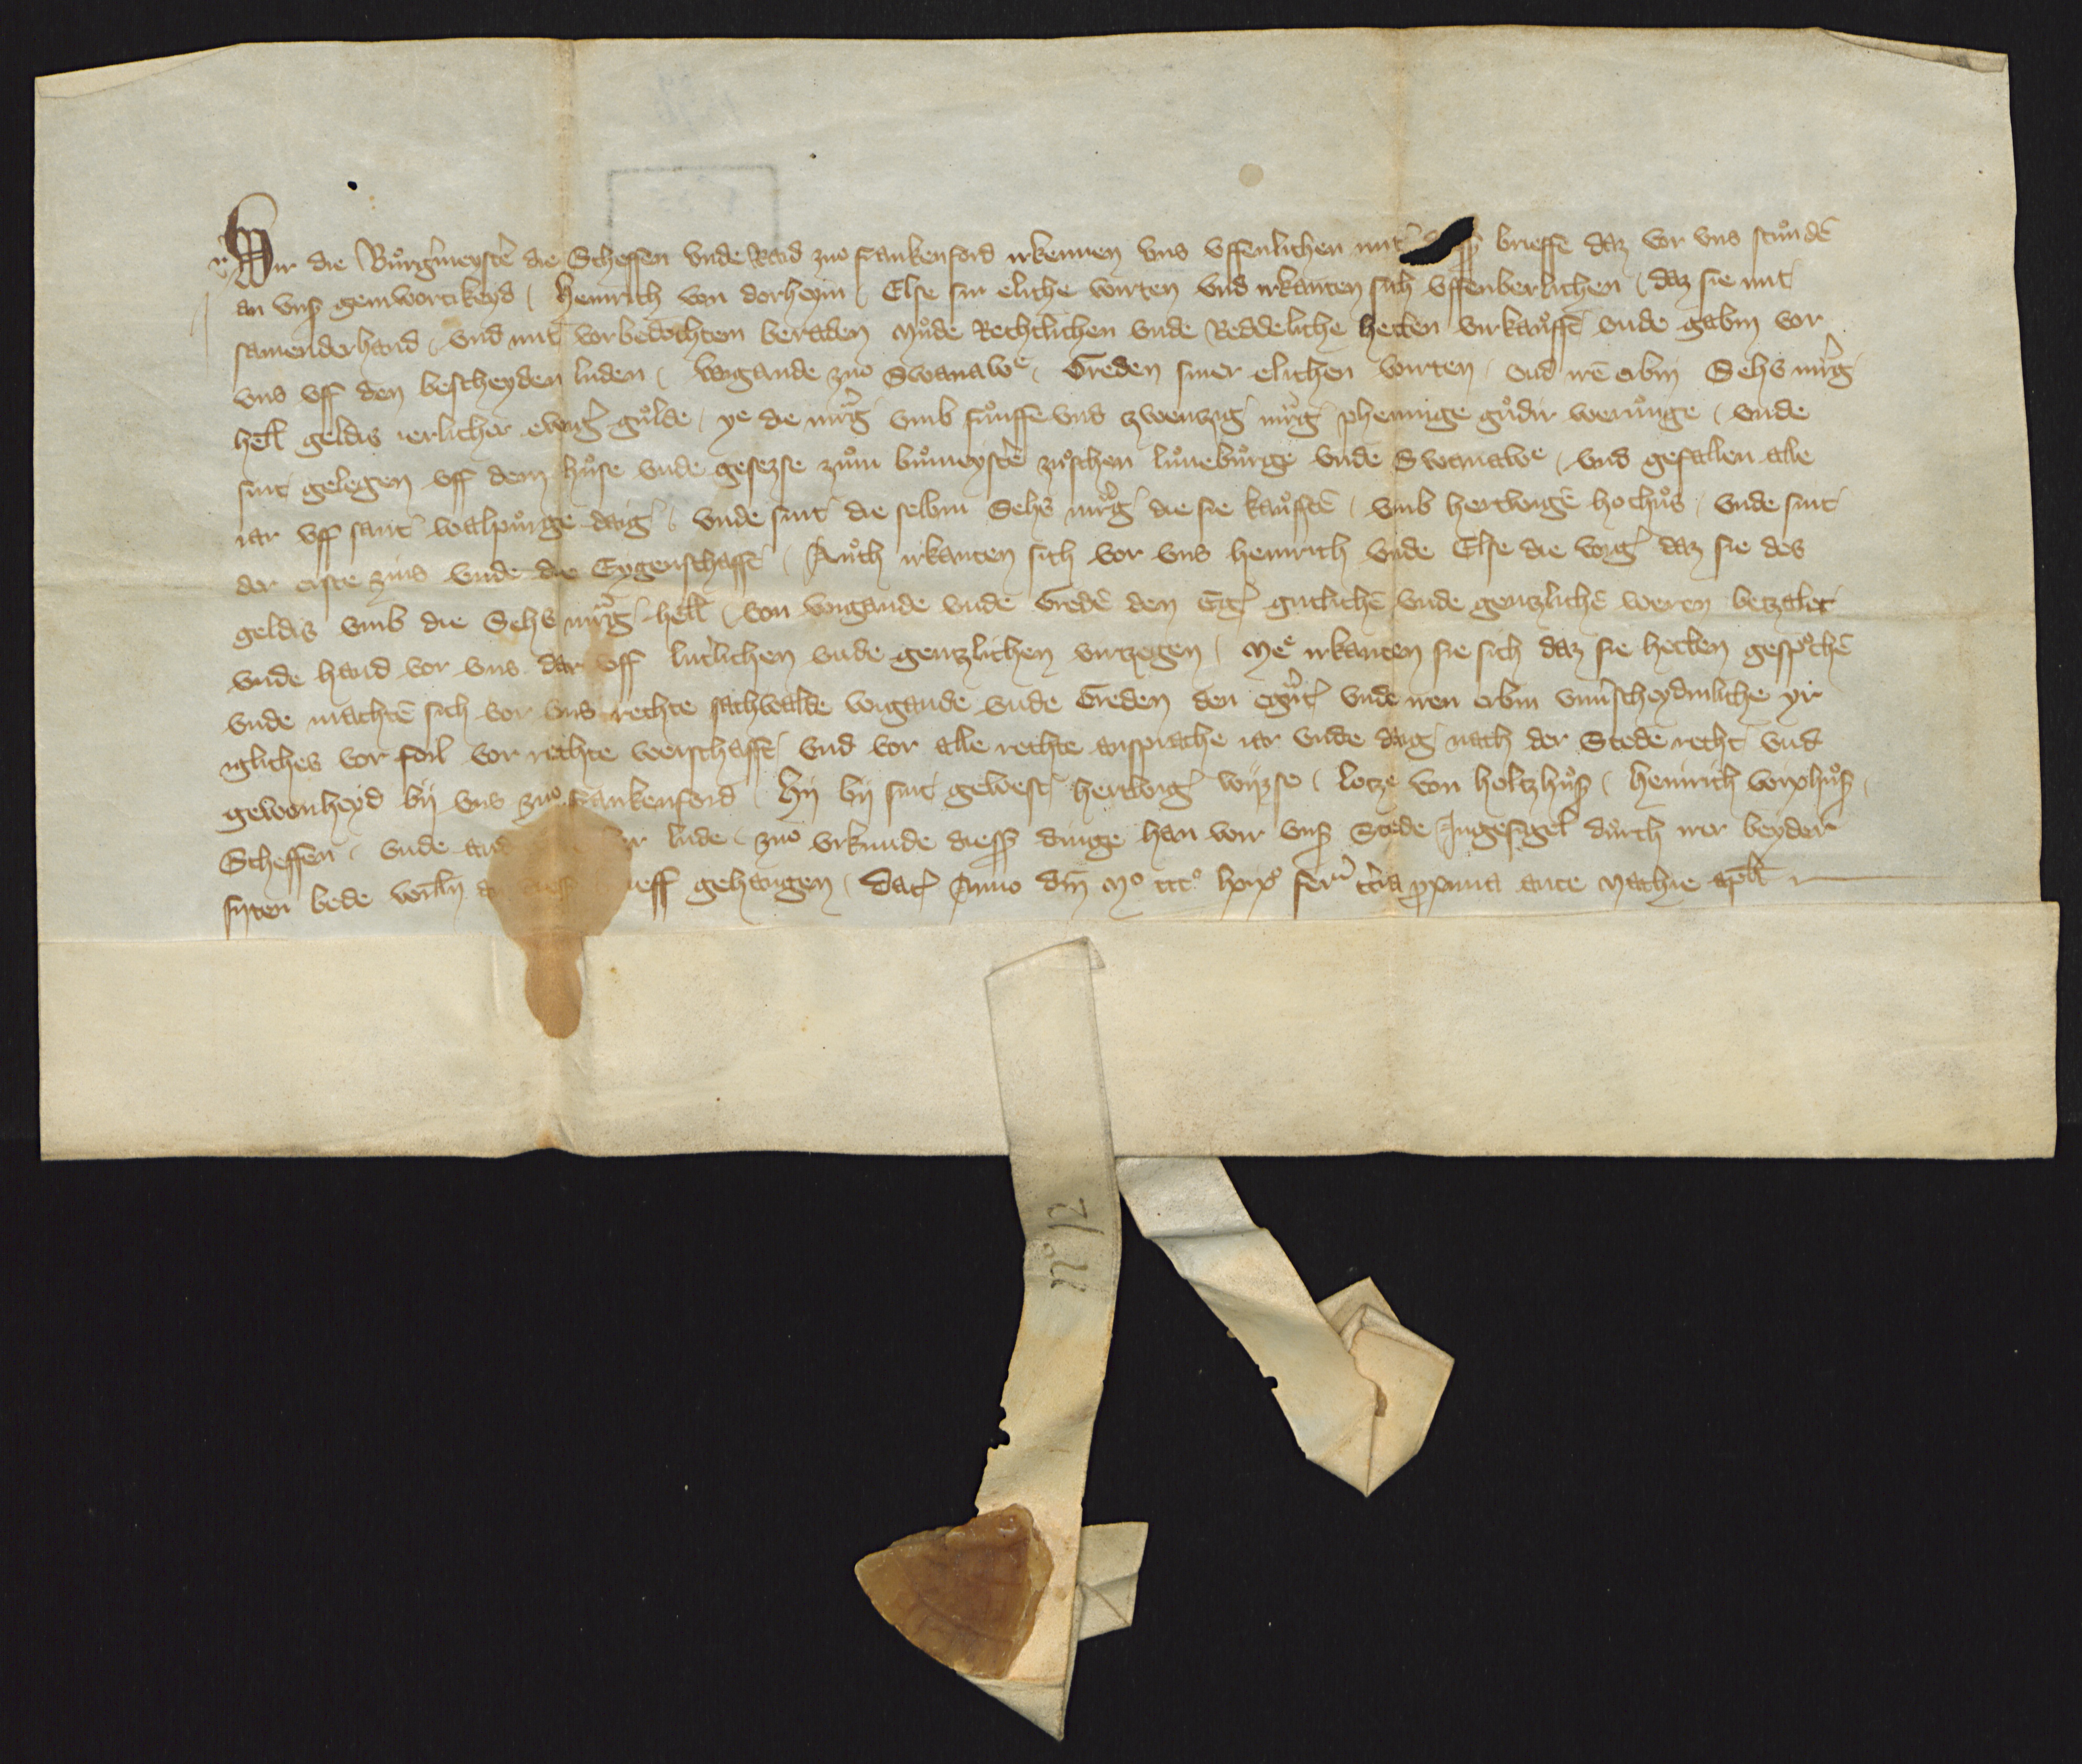 Wir die Bůrgermeystere die Scheffen vnde Rad zuo Frankenford irkennen vns vffenlichen mit brieffe daz vor vns stůnden
an vnsß geinwortikeyd Heinrich von dorheym Else sin eliche wirten vnd irkanten sich vffenberlichen daz sie mit
samenderhand vnd mit vorbedochtem beraden Můde Rechtlichen vnde Reddeliche hetten virkaůffē vnde gabin vor
vns vff den bescheyden luden wigande zuo Swanawe Greden siner elichen wirten vnd irē erbin Sehs mrg
hell geldis ierlicher ewigr gůlde ye die mrg vmb fůnffe vnd zwenzig mrg phennige gůdir werůnge vnde
sint gelegen vff dem hůse vnde gesezse zům bůmeystē zůschen lůnebůrge vnde Swanawe vnd gefallen alle
iar vff sant walpůrge daig vnde sint die selbin Sehs mrg die sie kaůfftē vmb hertwigē hochůs vnde sint
der erste zins vnde die Eygenschafft Aůch irkanten sich vor vns heinrich vnde Else die vorg daz sie des
geldis vmb die Sehs mrg hell von wigande vnde Gredē den Eg gutlichē vnde gentzlichē weren betzalet
vnde hand vor vns dar vff luterlichen vnde gentzlichen virtzegen Me irkanten sie sich daz sie hetten gesprochē
vnde machtē sich vor vns rechte sachwalde wigande vnde Greden den egnt vnde iren erbin vnuirscheydinliche yr
igliches vor foil vor rechte werschafft vnd vor alle rechte ansprache iar vnde daig nach der Stede recht vnd
gewonheyd bij vns zuo frankenford hij bij sint gewest hertwig wijzse lotze von holtzhůsß heinrich wixhůsß
Scheffen vnde and r lude zuo vrkunde diesß dinge han wir vnsß Stede Ingesigel důrch irer beyder
syten bede willn an diesß ieff gehangen Dat Anno dm Mo ccco lxixo feria tercia proxima ante Mathie apli
No 12